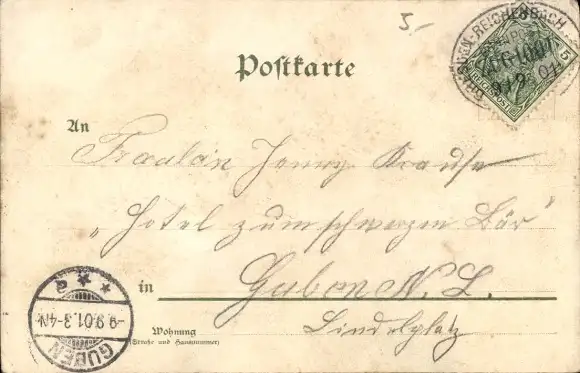 5.-
Postkarte
REICHENBACH
ZUG 1001
9 9 01
REICHSPOST
5
An
Fräulein Jenny Krause
„Hotel zum schwarzen Bär“
in Guben N. L.
Lindelplatz
Wohnung
(Straße und Hausnummer)
GUBEN
9.9.01.3-4N
* * a